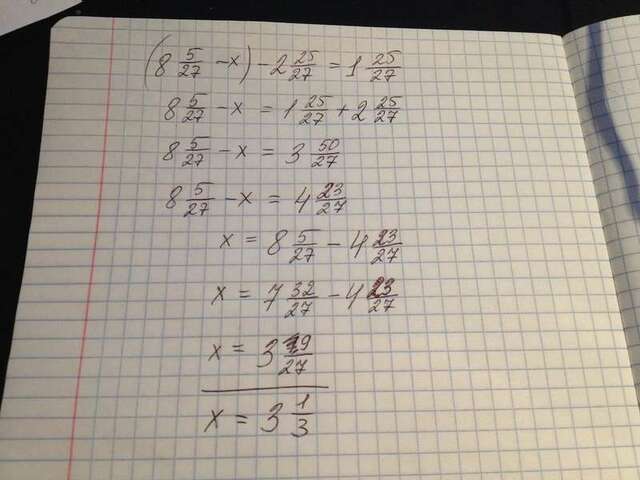 (8 5/27 - x) - 2 25/27 = 1 25/27
8 5/27 - x = 1 25/27 + 2 25/27
8 5/27 - x = 3 50/27
8 5/27 - x = 4 23/27
x = 8 5/27 - 4 23/27
x = 7 32/27 - 4 23/27
x = 3 9/27
x = 3 1/3